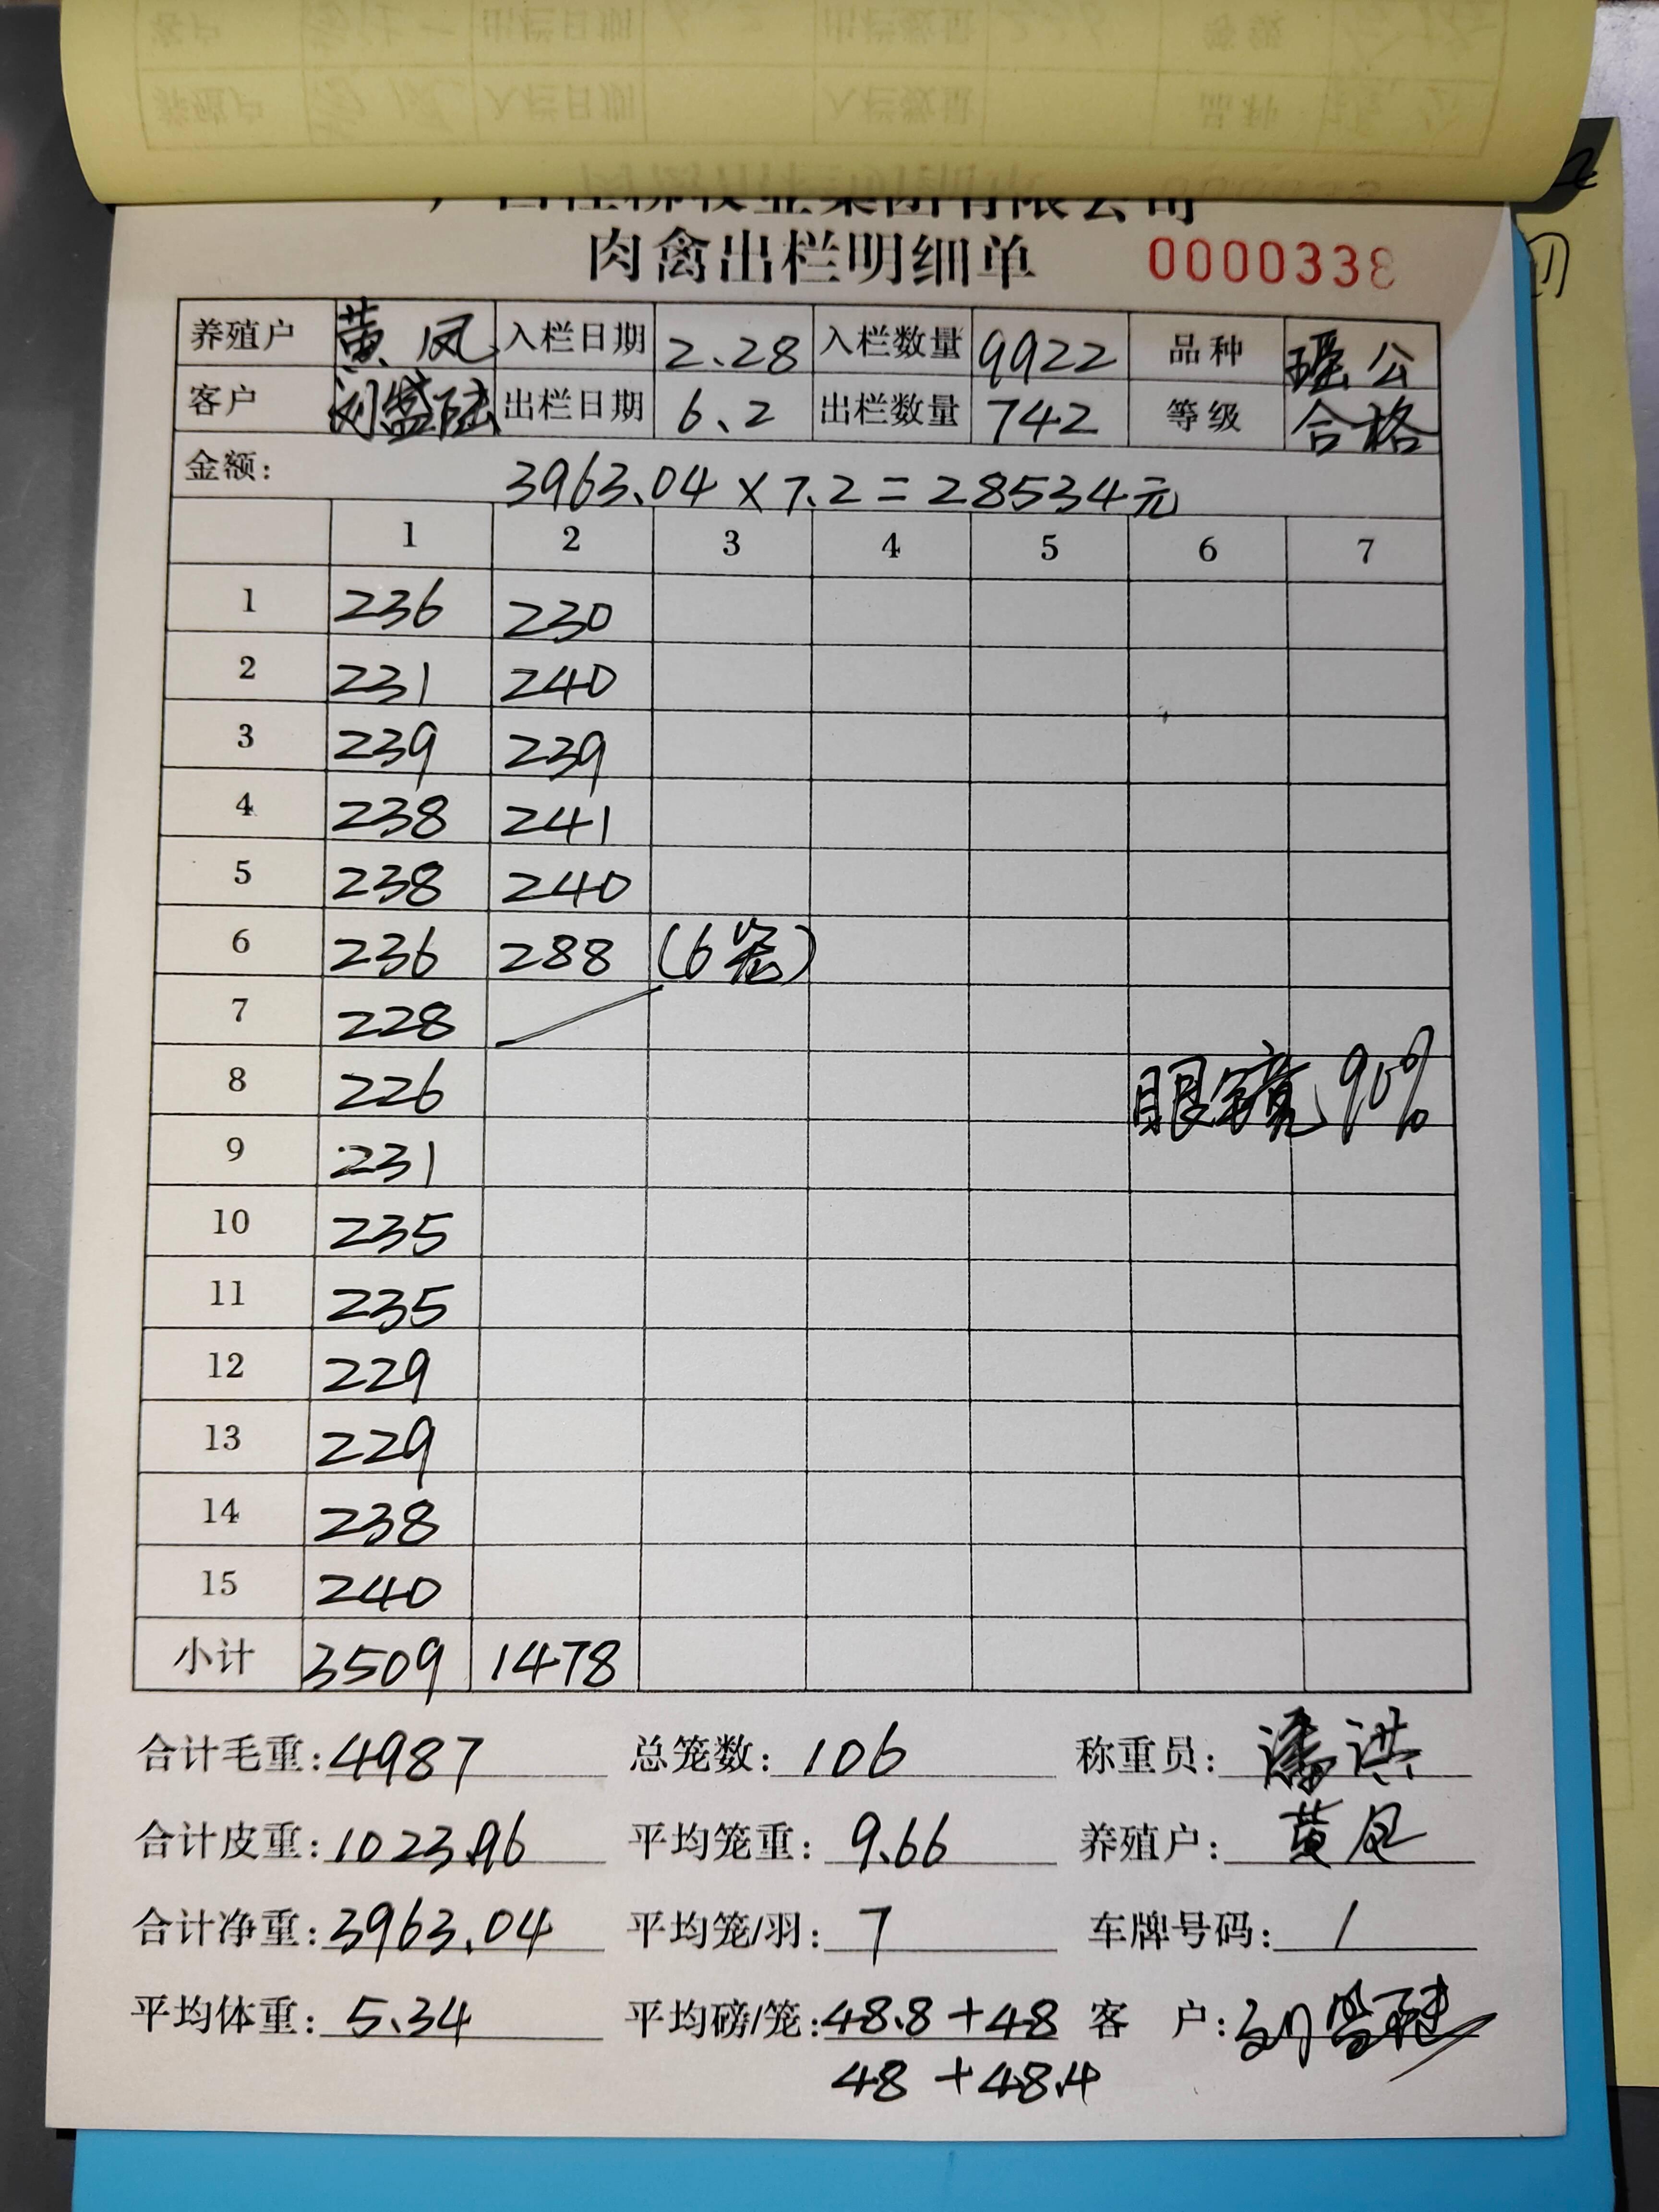 集团有限公司
肉禽出栏明细单 0000338
养殖户 黄凤 入栏日期 2.28 入栏数量 9922 品种 瑶公
客户 刘盛陆 出栏日期 6.2 出栏数量 742 等级 合格
金额: 3963.04 × 7.2 = 28534元
1 2 3 4 5 6 7
1 236 230
2 231 240
3 239 239
4 238 241
5 238 240
6 236 288 (6笼)
7 228
8 226 眼镜90%
9 231
10 235
11 235
12 229
13 229
14 238
15 240
小计 3509 1478
合计毛重: 4987 总笼数: 106 称重员: 潘洪
合计皮重: 1023.96 平均笼重: 9.66 养殖户: 黄凤
合计净重: 3963.04 平均笼/羽: 7 车牌号码: /
平均体重: 5.34 平均磅/笼: 48.8+48 客户:
48+48.4